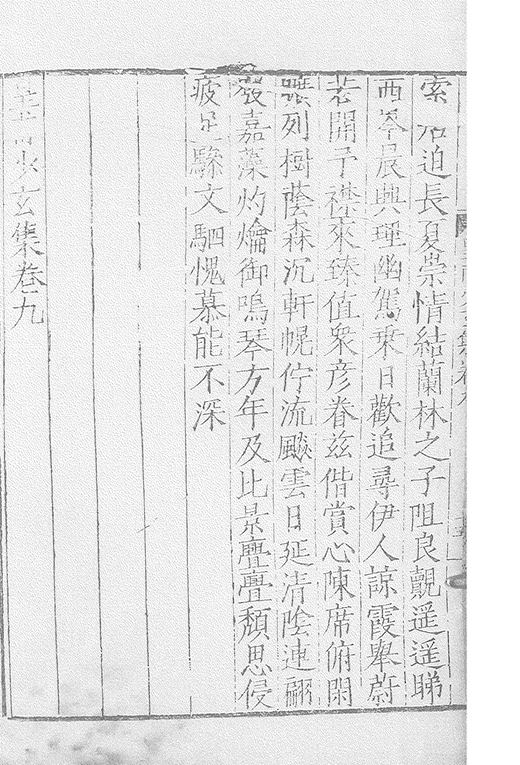 索居迫長夏崇情結蘭林之子阻良覿遥遥睇
西岑晨興理幽駕乗日歡追尋伊人諒霞舉蔚
若開予襟來臻值衆彦眷兹偕賞心陳席俯閑
列樹蔭森沉軒幌佇流飈雲日延清陰連翩
發嘉藻灼爚御鳴琴方年及比景亹亹頽思侵
疲足驂文駟愧慕能不深
皇甫少玄集卷九